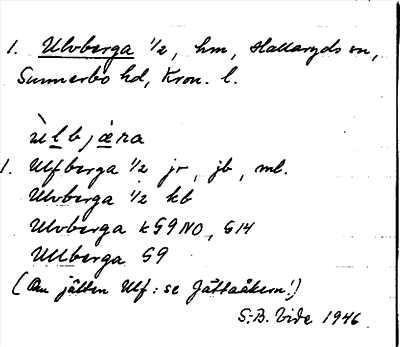 1. Ulvberga 1/2, hm, Hallaryds sn,
Sunnerbo hd, Kron. l.
ùlbjæra
1. Ulfberga 1/2 jr, jb, ml.
Ulvberga 1/2 kb
Ulvberga k G9 NO, G14
Ullberga G9
(Om jätten Ulf: se Jättaåkern!)
S:B. Vide 1946